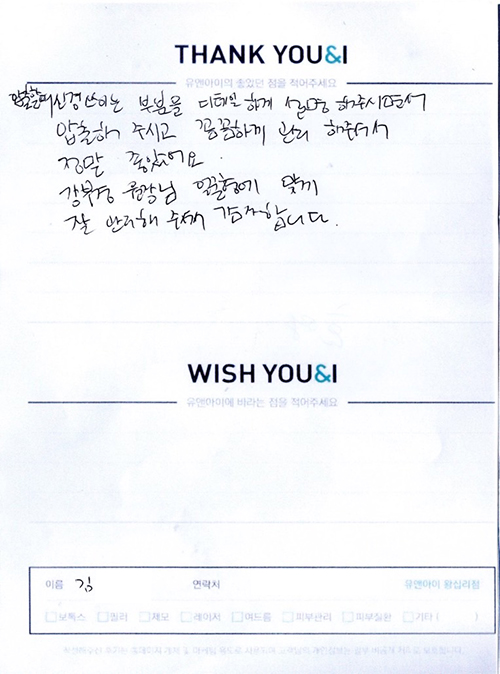 THANK YOU&I
유앤아이의 좋았던 점을 적어주세요
압출할때 신경쓰이는 부분을 디테일하게 설명해주시면서
압출해 주시고 꼼꼼하게 관리 해주셔서
정말 좋았어요.
강부경 원장님 얼굴형에 맞게
잘 관리해 주셔서 감사합니다.
WISH YOU&I
유앤아이에 바라는 점을 적어주세요
이름 김 연락처 유앤아이 왕십리점
보톡스 필러 제모 레이저 여드름 피부관리 피부질환 기타 ( )